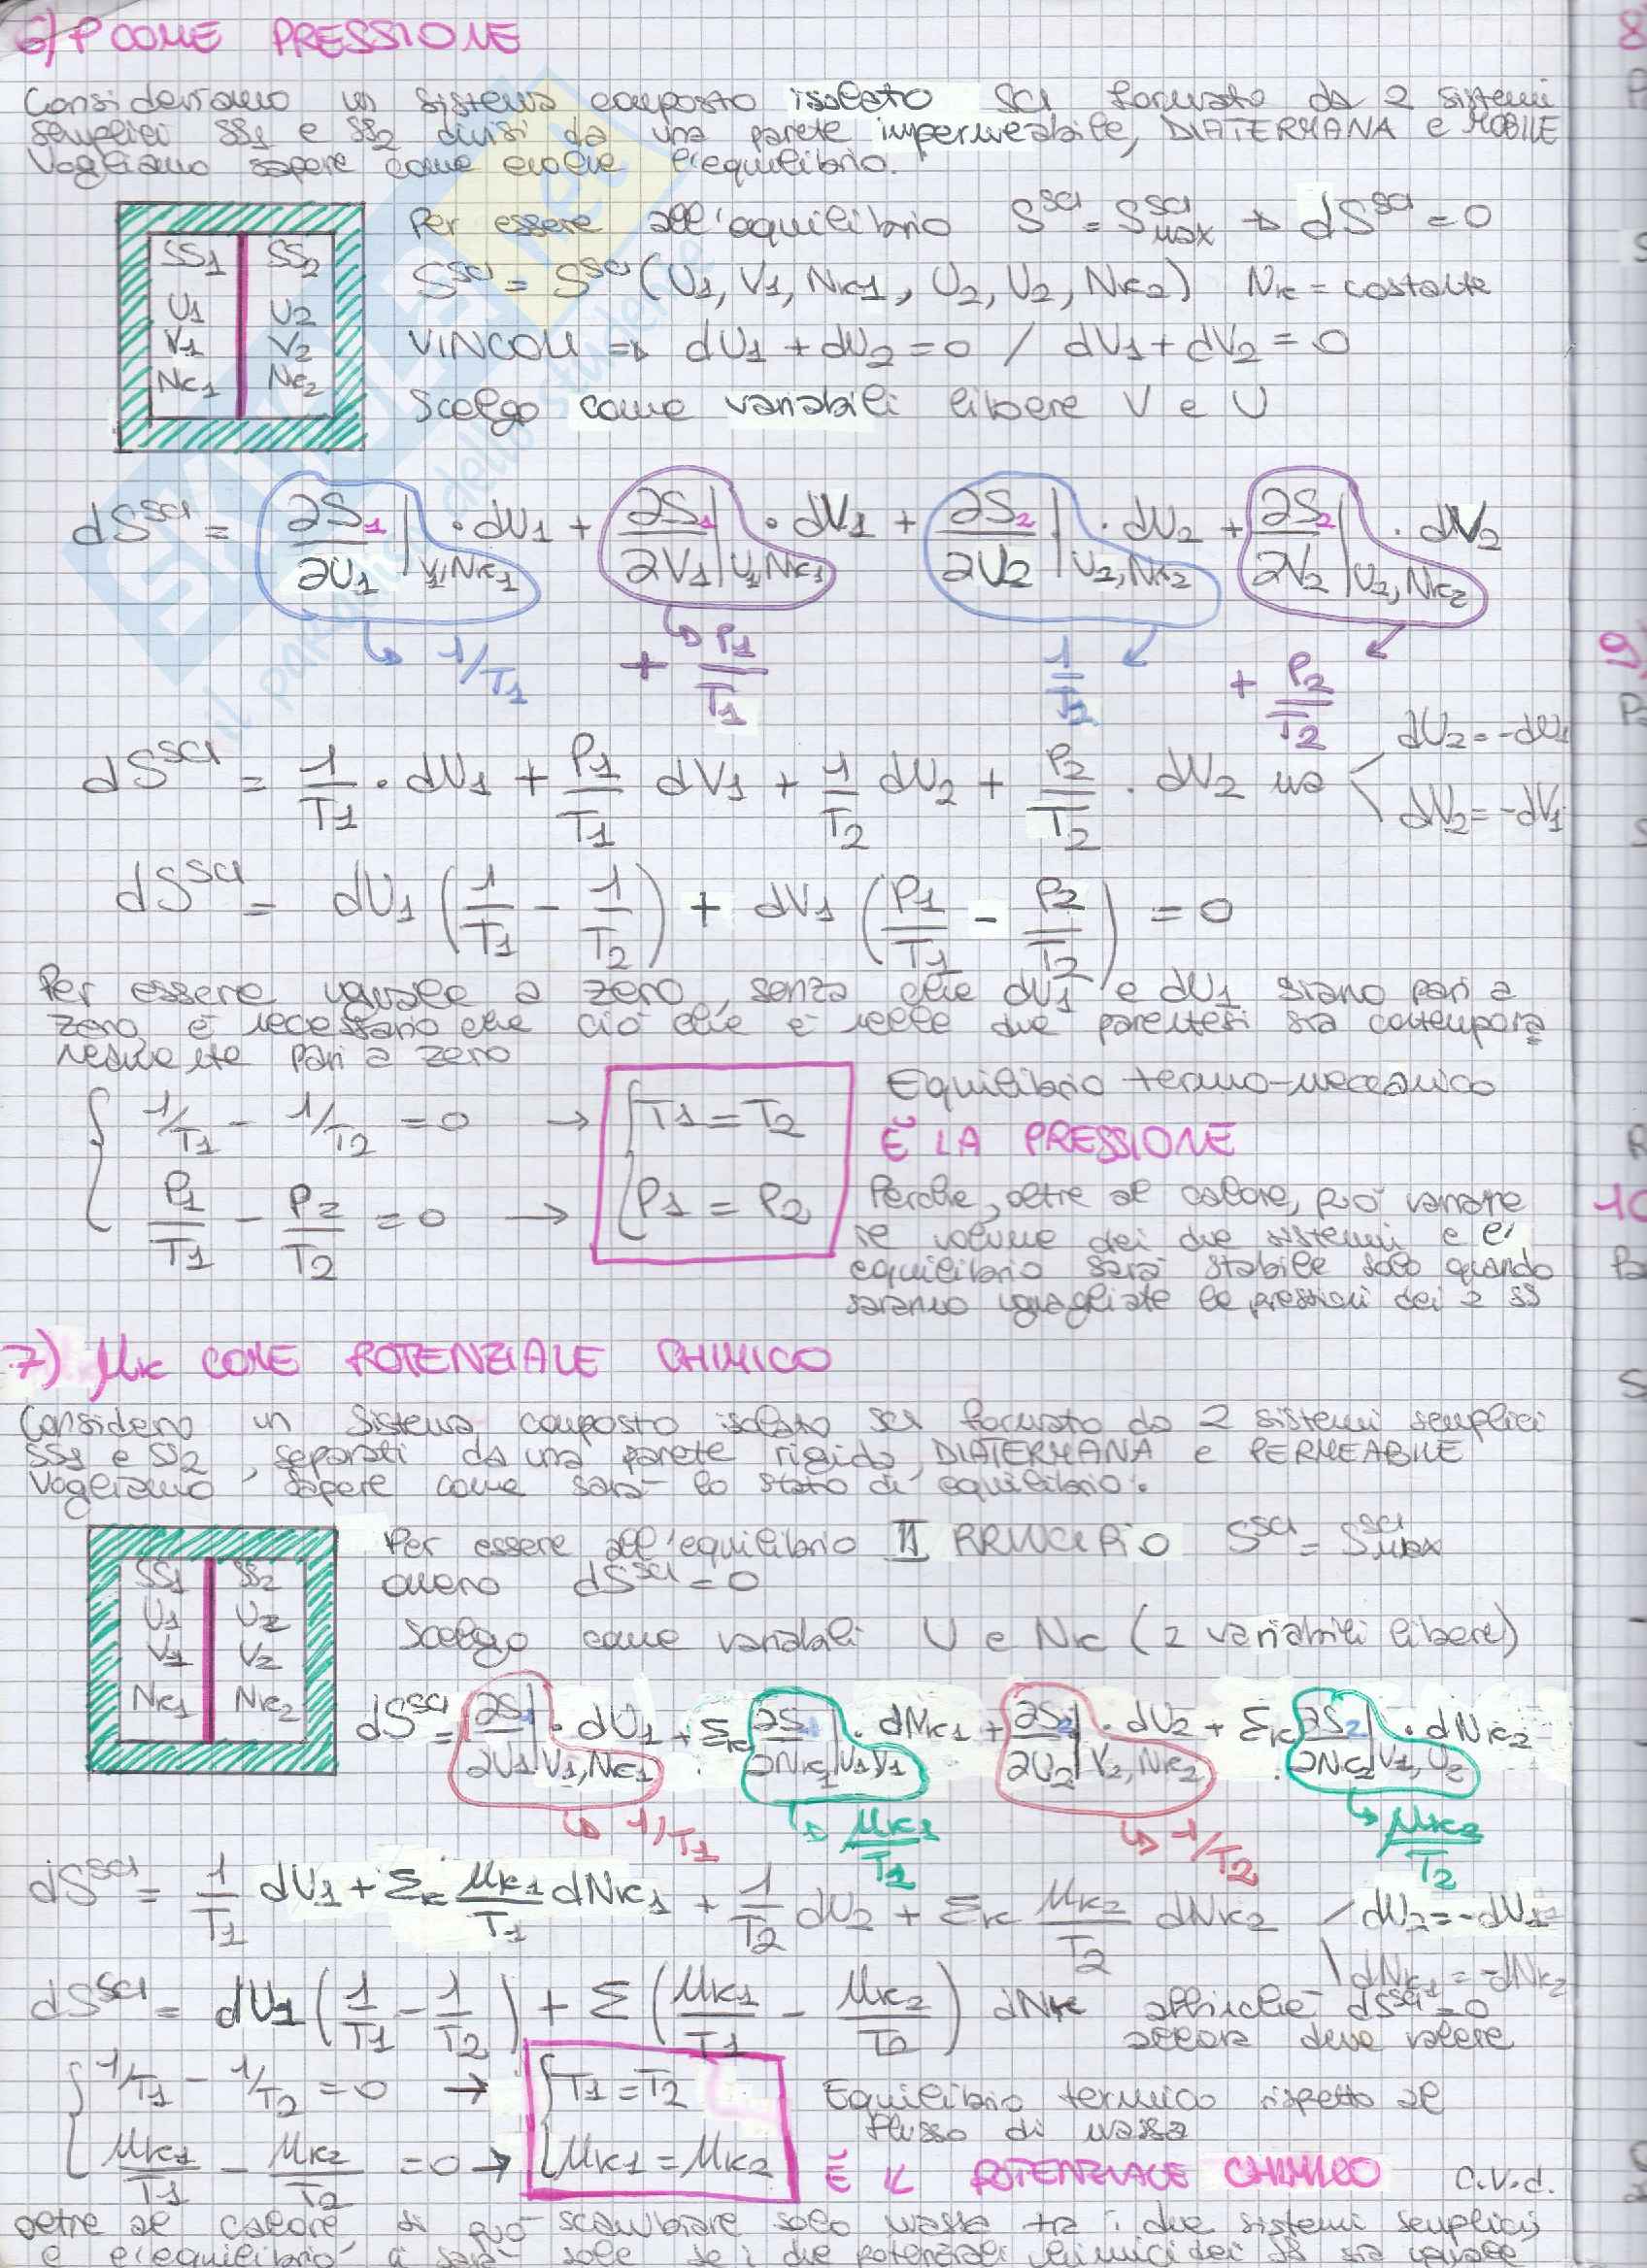 6) P COME PRESSIONE
Consideriamo un sistema composto isolato SCI formato da 2 sistemi
semplici SS1 e SS2 divisi da una parete impermeabile, DIATERMANA e MOBILE
Vogliamo sapere come evolve l'equilibrio.
SS1 SS2
U1 U2
V1 V2
Nk1 Nk2
Per essere all'equilibrio S^SCI = S^SCI MAX → dS^SCI = 0
S^SCI = S^SCI (U1, V1, Nk1, U2, U2, Nk2) Nk = costante
VINCOLI => dU1 + dU2 = 0 / dV1 + dV2 = 0
Scelgo come variabili libere V e U
dS^SCI = ∂S1/∂U1|V1,Nk1 · dU1 + ∂S1/∂V1|U1,Nk1 · dV1 + ∂S2/∂U2|U2,Nk2 · dU2 + ∂S2/∂V2|U2,Nk2 · dV2
1/T1 + P1/T1 1/T2 + P2/T2
dS^SCI = 1/T1 · dU1 + P1/T1 dV1 + 1/T2 dU2 + P2/T2 · dV2 ma dU2 = -dU1
dV2 = -dV1
dS^SCI = dU1 (1/T1 - 1/T2) + dV1 (P1/T1 - P2/T2) = 0
Per essere uguale a zero, senza che dV1 e dU1 siano pari a
zero è necessario che ciò che è nelle due parentesi sia contempora
neamente pari a zero
1/T1 - 1/T2 = 0 → T1 = T2
P1/T1 - P2/T2 = 0 → P1 = P2
Equilibrio termo-meccanico
È LA PRESSIONE
Perche, oltre al calore, può variare
il volume dei due sistemi e l'
equilibrio sarà stabile solo quando
saranno uguagliate le pressioni dei 2 SS
7) μk COME POTENZIALE CHIMICO
Considero un sistema composto isolato SCI formato da 2 sistemi semplici
SS1 e SS2, separati da una parete rigida, DIATERMANA e PERMEABILE
Vogliamo sapere come sarà lo stato di equilibrio.
SS1 SS2
U1 U2
V1 V2
Nk1 Nk2
Per essere all'equilibrio II PRINCIPIO S^SCI = S^SCI MAX
ovvero dS^SCI = 0
Scelgo come variabili U e Nk (2 variabili libere)
dS^SCI = ∂S1/∂U1|V1,Nk1 · dU1 + Σk ∂S1/∂Nk1|U1V1 · dNk1 + ∂S2/∂U2|V2,Nk2 · dU2 + Σk ∂S2/∂Nk2|V1,U2 · dNk2
1/T1 μk1/T1 1/T2 μk2/T2
dS^SCI = 1/T1 dU1 + Σk μk1/T1 dNk1 + 1/T2 dU2 + Σk μk2/T2 dNk2 / dU2 = -dU1
\ dNk1 = -dNk2
dS^SCI = dU1 (1/T1 - 1/T2) + Σ (μk1/T1 - μk2/T2) dNk affinché dS^SCI = 0
allora deve valere
1/T1 - 1/T2 = 0 → T1 = T2
μk1/T1 - μk2/T2 = 0 → μk1 = μk2
Equilibrio termico rispetto al
flusso di massa
È IL POTENZIALE CHIMICO C.V.d.
oltre al calore si può scambiare solo massa tra i due sistemi semplici
e l'equilibrio ci sarà solo se i due potenziali chimici dei SS sia uguale